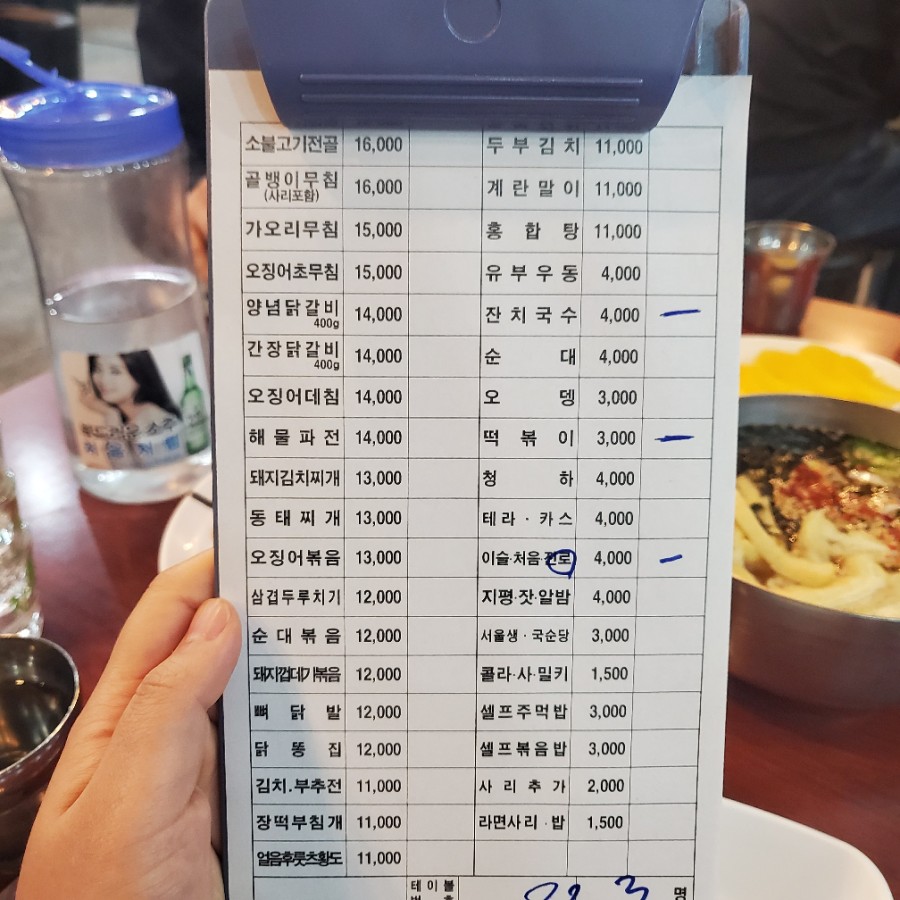 소불고기전골 16,000 두부김치 11,000
골뱅이무침 16,000 계란말이 11,000
(사리포함)
가오리무침 15,000 홍합탕 11,000
오징어초무침 15,000 유부우동 4,000
양념닭갈비 14,000 잔치국수 4,000
400g
간장닭갈비 14,000 순대 4,000
400g
오징어데침 14,000 오뎅 3,000
해물파전 14,000 떡볶이 3,000
돼지김치찌개 13,000 청하 4,000
동태찌개 13,000 테라·카스 4,000
오징어볶음 13,000 이슬·처음·진로 4,000
삼겹두루치기 12,000 지평·잣·알밤 4,000
순대볶음 12,000 서울생·국순당 3,000
돼지껍데기볶음 12,000 콜라·사·밀키 1,500
뼈닭발 12,000 셀프주먹밥 3,000
닭똥집 12,000 셀프볶음밥 3,000
김치.부추전 11,000 사리추가 2,000
장떡부침개 11,000 라면사리·밥 1,500
얼음후룻츠황도 11,000
테이블
3 명
부드러운 소주
처음처럼